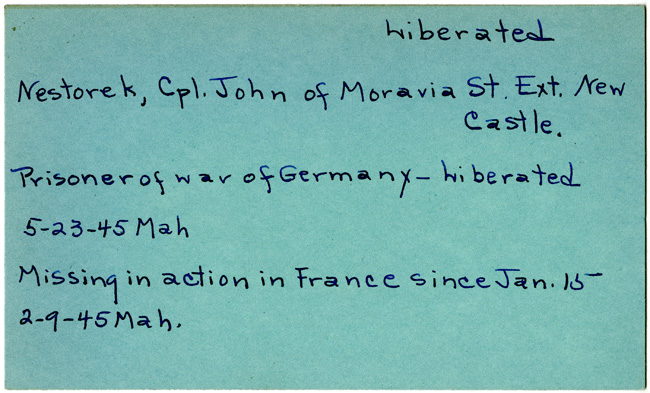 Liberated
Nestorek, Cpl. John of Moravia St. Ext. New
Castle.
Prisoner of war of Germany - Liberated
5-23-45 Mah
Missing in action in France since Jan. 15
2-9-45 Mah.